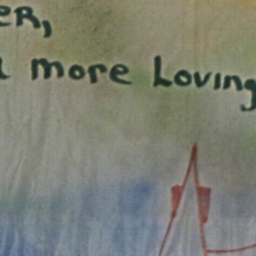 eR,
more Loving